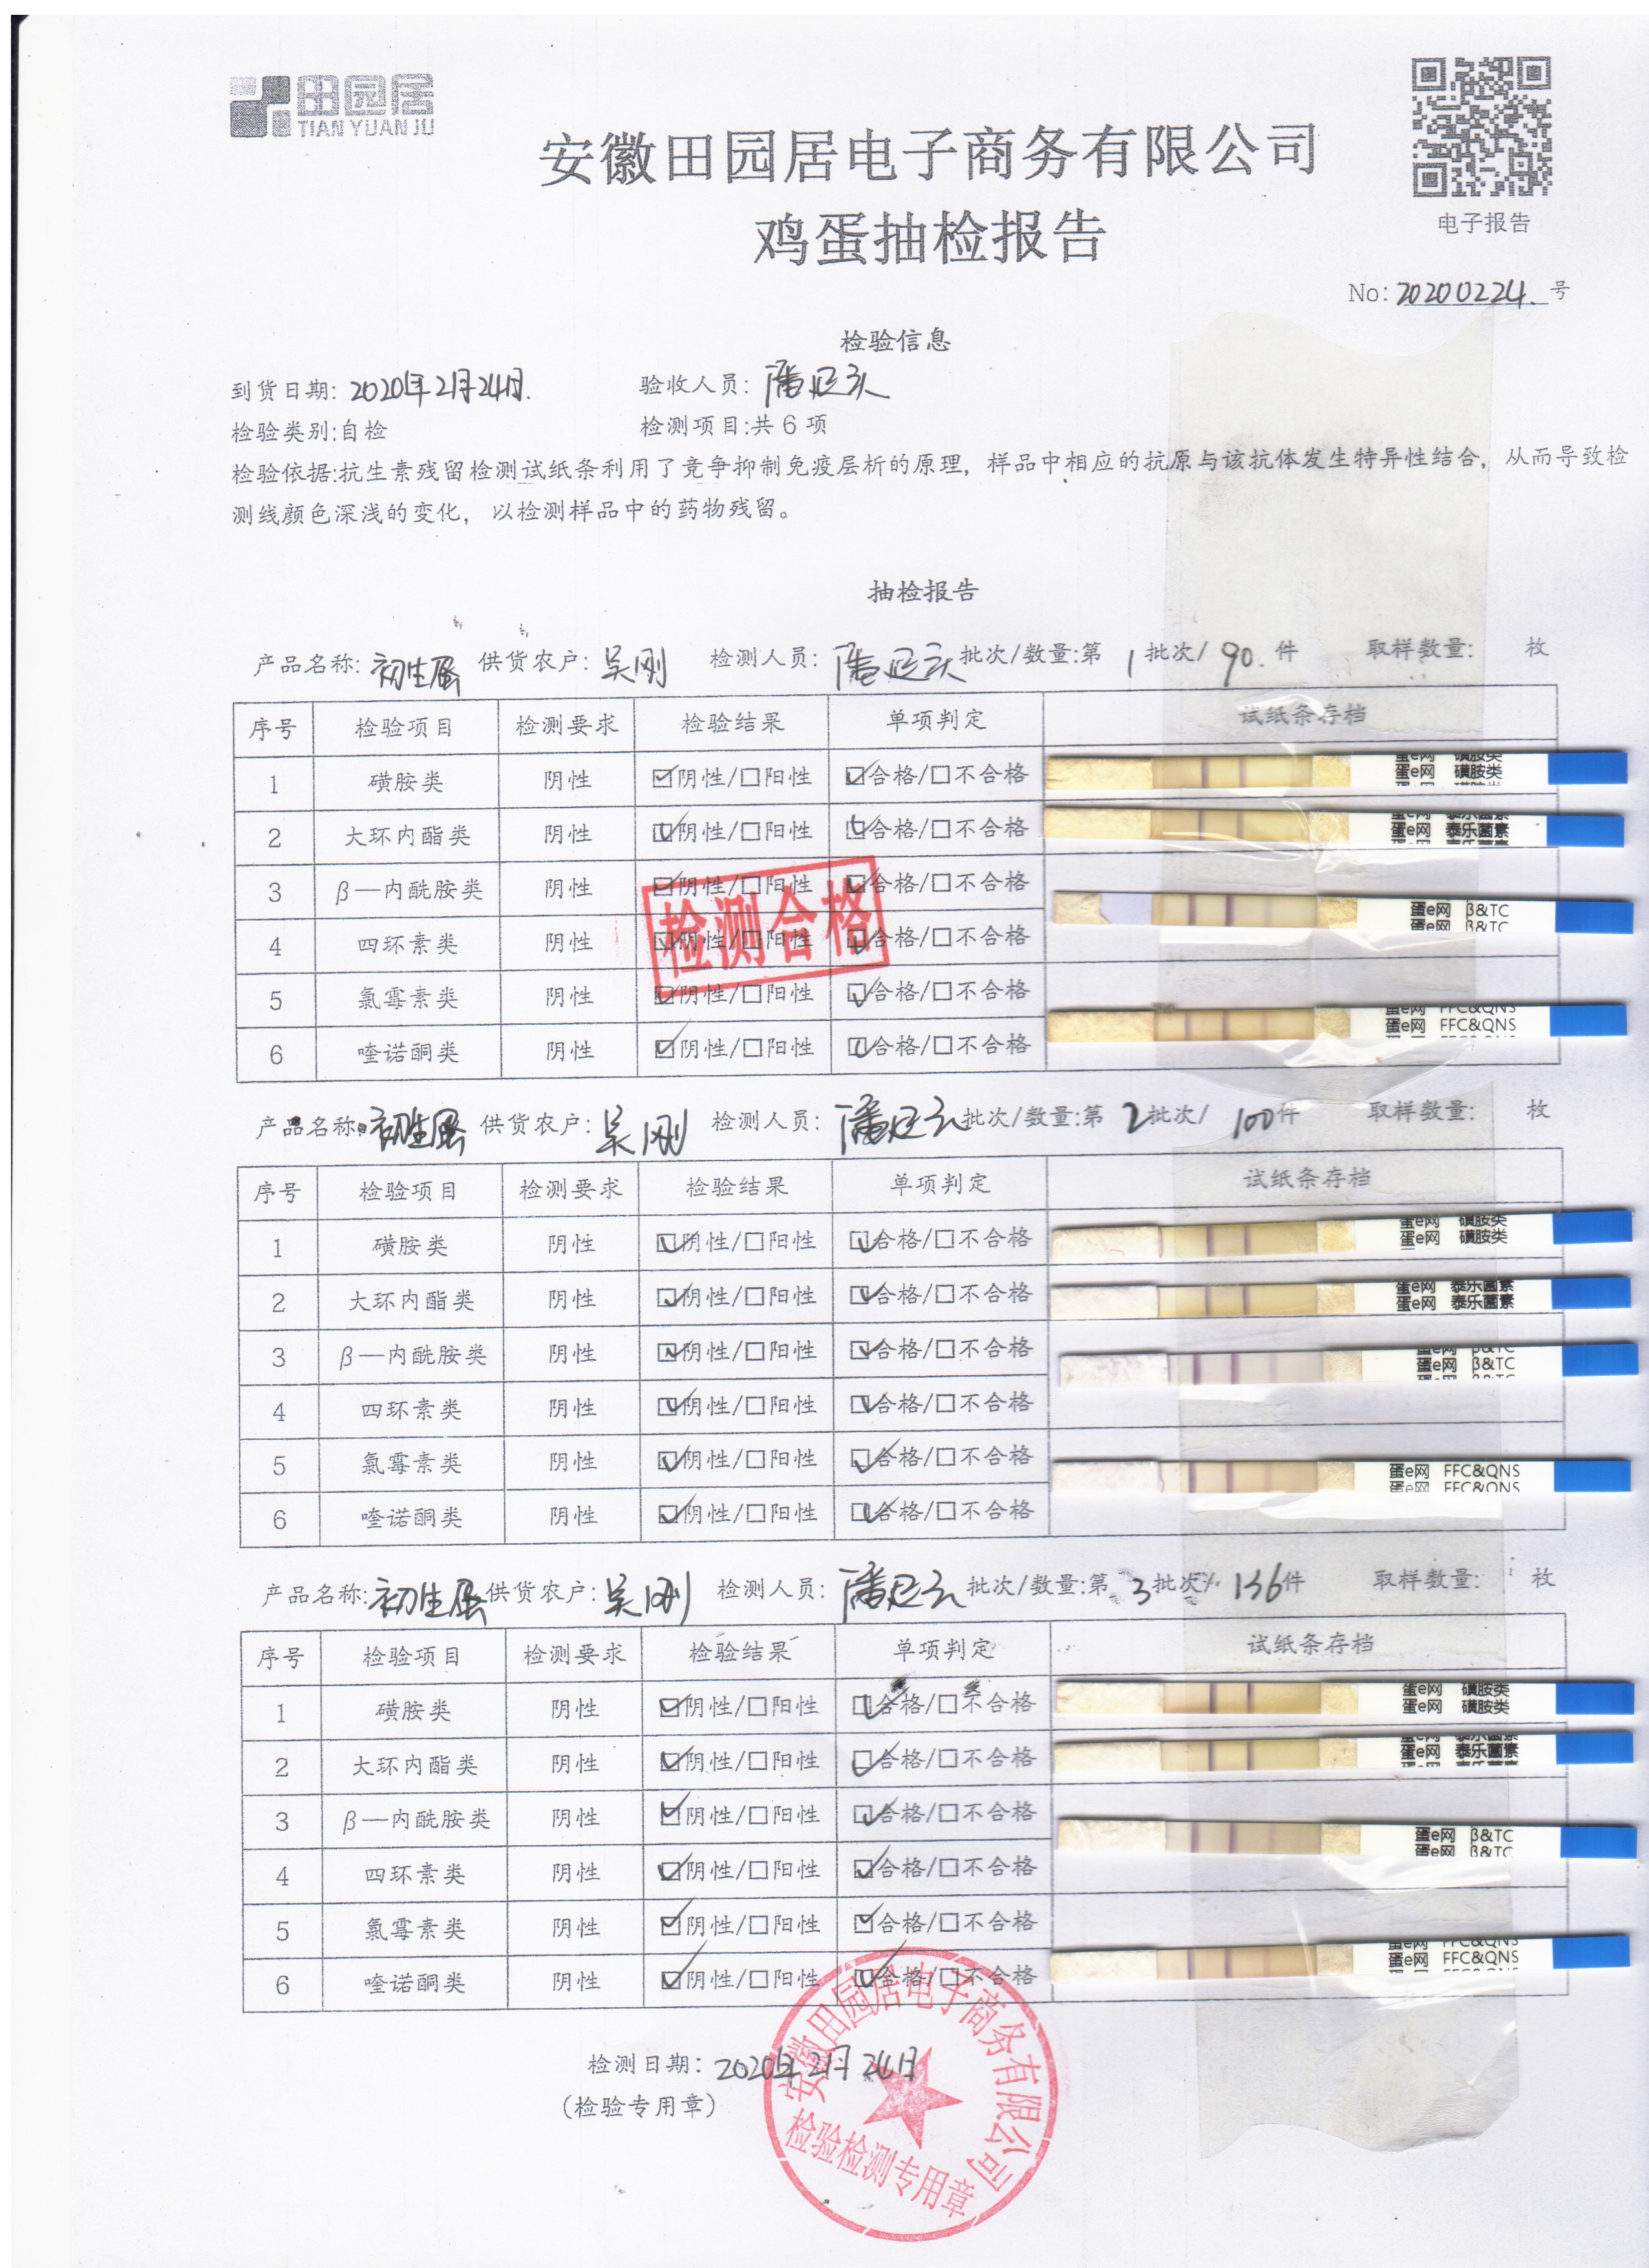 田园居
TIAN YUAN JU
安徽田园居电子商务有限公司
鸡蛋抽检报告
电子报告
No: 20200224. 号
检验信息
到货日期: 2020年2月24日. 验收人员:
检验类别:自检 检测项目:共 6 项
检验依据:抗生素残留检测试纸条利用了竞争抑制免疫层析的原理, 样品中相应的抗原与该抗体发生特异性结合, 从而导致检
测线颜色深浅的变化, 以检测样品中的药物残留。
抽检报告
产品名称: 初生蛋 供货农户: 吴刚 检测人员: 批次/数量:第 1 批次/ 90. 件 取样数量: 枚
序号 检验项目 检测要求 检验结果 单项判定 试纸条存档
1 磺胺类 阴性 ☑阴性/☐阳性 ☑合格/☐不合格 蛋e网 磺胺类
2 大环内酯类 阴性 ☑阴性/☐阳性 ☑合格/☐不合格 蛋e网 泰乐菌素
3 β—内酰胺类 阴性 ☑阴性/☐阳性 ☑合格/☐不合格 蛋e网 β&TC
4 四环素类 阴性 ☑阴性/☐阳性 ☑合格/☐不合格
5 氯霉素类 阴性 ☑阴性/☐阳性 ☑合格/☐不合格 蛋e网 FFC&QNS
6 喹诺酮类 阴性 ☑阴性/☐阳性 ☑合格/☐不合格
检测合格
产品名称: 初生蛋 供货农户: 吴刚 检测人员: 批次/数量:第 2 批次/ 100 件 取样数量: 枚
序号 检验项目 检测要求 检验结果 单项判定 试纸条存档
1 磺胺类 阴性 ☑阴性/☐阳性 ☑合格/☐不合格 蛋e网 磺胺类
2 大环内酯类 阴性 ☑阴性/☐阳性 ☑合格/☐不合格 蛋e网 泰乐菌素
3 β—内酰胺类 阴性 ☑阴性/☐阳性 ☑合格/☐不合格 蛋e网 β&TC
4 四环素类 阴性 ☑阴性/☐阳性 ☑合格/☐不合格
5 氯霉素类 阴性 ☑阴性/☐阳性 ☑合格/☐不合格 蛋e网 FFC&QNS
6 喹诺酮类 阴性 ☑阴性/☐阳性 ☑合格/☐不合格
产品名称: 初生蛋 供货农户: 吴刚 检测人员: 批次/数量:第 3 批次/ 136 件 取样数量: 枚
序号 检验项目 检测要求 检验结果 单项判定 试纸条存档
1 磺胺类 阴性 ☑阴性/☐阳性 ☑合格/☐不合格 蛋e网 磺胺类
2 大环内酯类 阴性 ☑阴性/☐阳性 ☑合格/☐不合格 蛋e网 泰乐菌素
3 β—内酰胺类 阴性 ☑阴性/☐阳性 ☑合格/☐不合格 蛋e网 β&TC
4 四环素类 阴性 ☑阴性/☐阳性 ☑合格/☐不合格
5 氯霉素类 阴性 ☑阴性/☐阳性 ☑合格/☐不合格
6 喹诺酮类 阴性 ☑阴性/☐阳性 ☑合格/☐不合格 蛋e网 FFC&QNS
检测日期: 2020年2月24日
(检验专用章)
安徽田园居电子商务有限公司
检验检测专用章